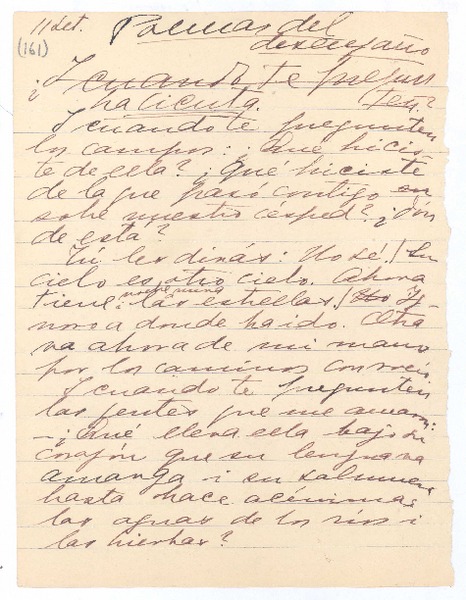 11 Let. Poemas del
(161) desengaño
¿I cuando te pregun
ten?
la cicuta.
I cuando te pregunten
los campos: ¿Qué hicis-
te de ella? ¿Qué hiciste
de la que pasó contigo en
sobre nuestro césped? ¿Dón
de está?
Tú les dirás: No sé. Su
cielo es otro cielo. Ahora
tiene las estrellas. Yo Ig-
noro a donde ha ido. Otra
va ahora de mi mano
por los caminos con rocío.
I cuando te pregunten
las gentes que me amaron:
—¿Qué lleva ella bajo su
corazón que su lengua va
amarga i su salmuera
hasta hace acérrimas
las aguas de los ríos i
las hierbas?